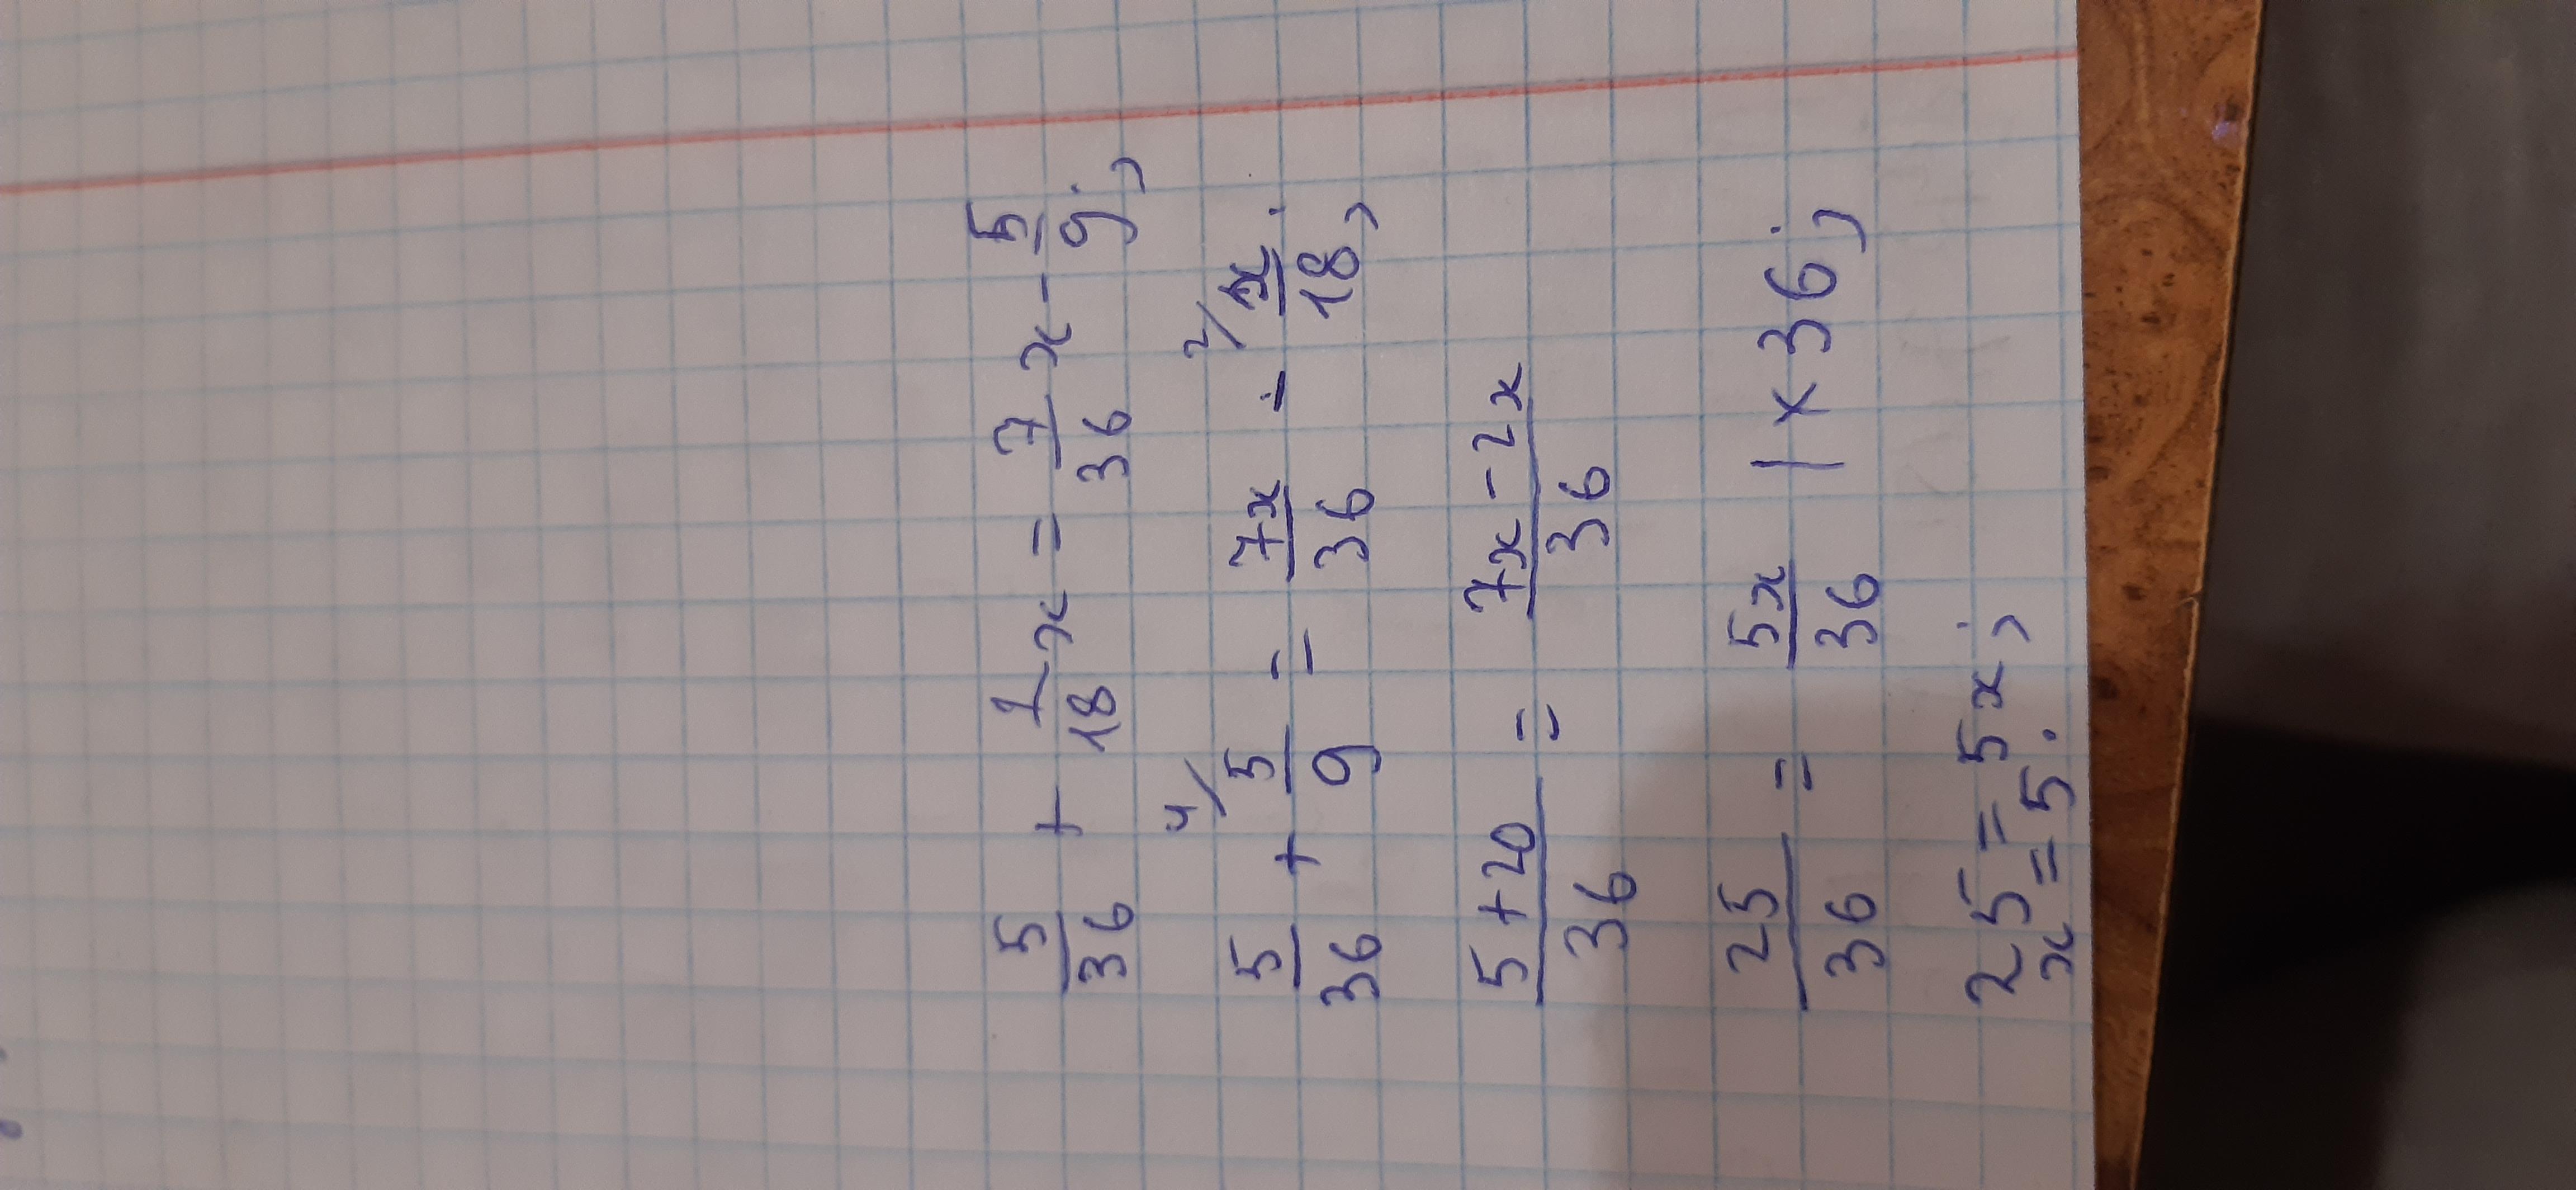 5/36 + 1/18 x = 7/36 x - 5/9;
5/36 + ⁴⁄ 5/9 = 7x/36 - ²⁄ x/18;
5+20/36 = 7x-2x/36
25/36 = 5x/36 | × 36;
25 = 5x;
x = 5.